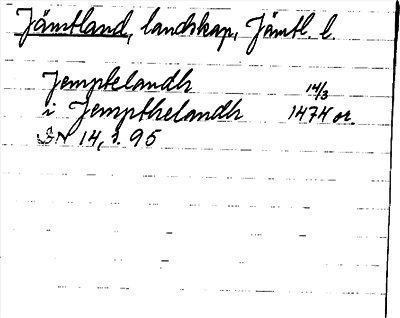 Jämtland, landskap, Jämtl. l.
Jemptelandh 14/3
i Jempthelandh 1474 or.
SN 14, s. 95